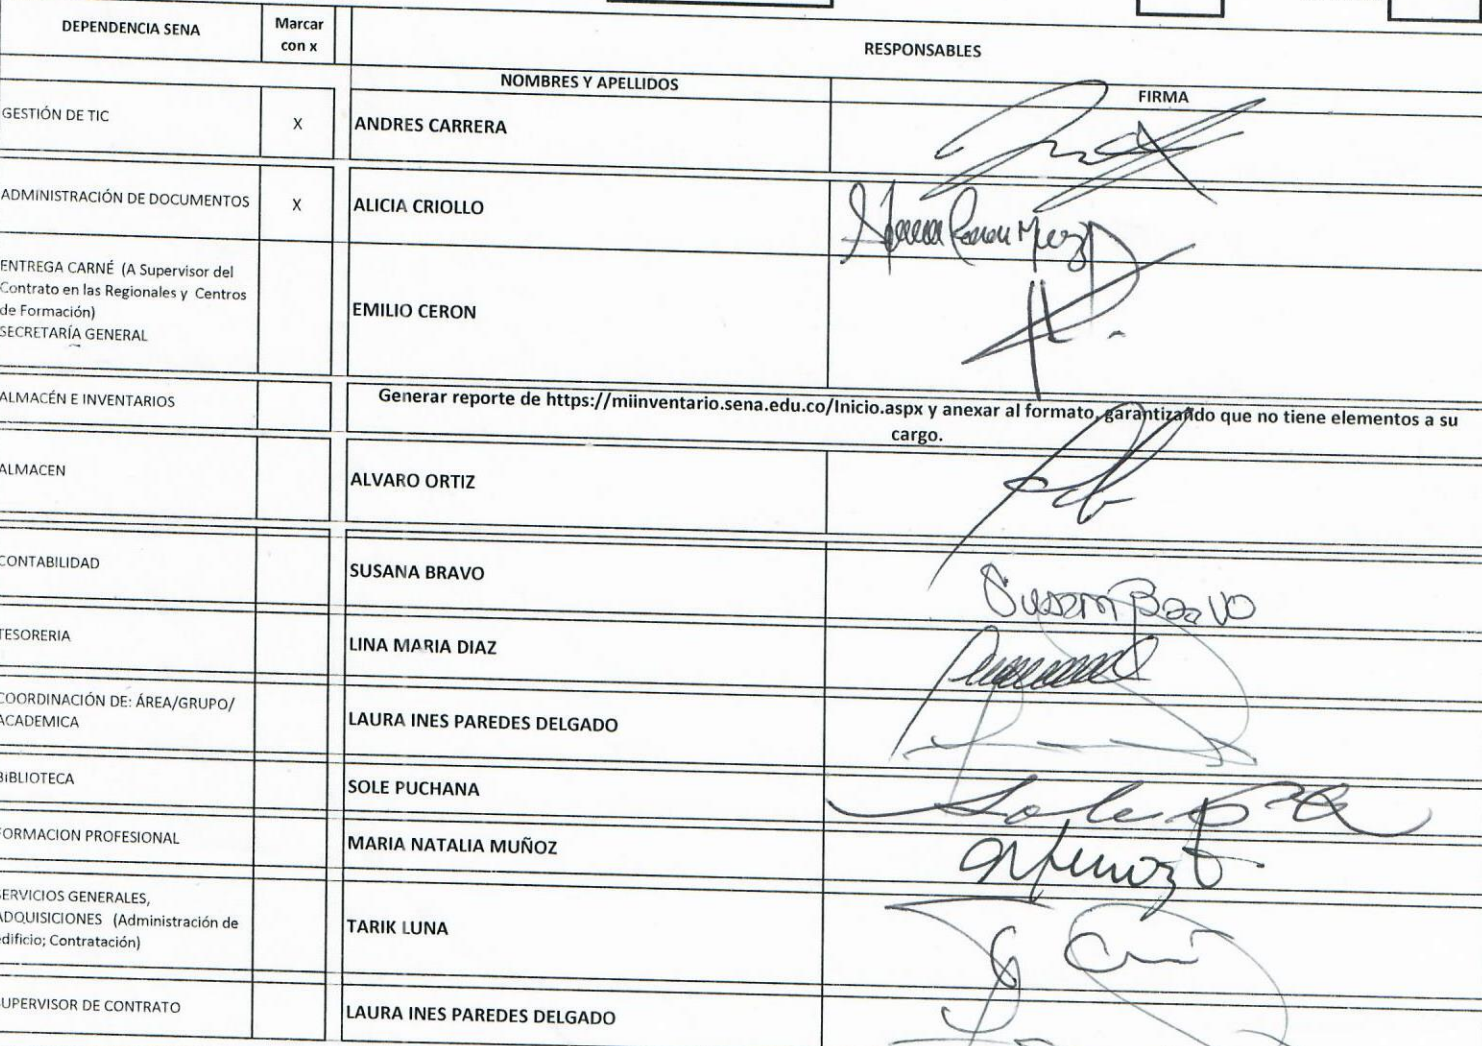 DEPENDENCIA SENA
Marcar
con x
RESPONSABLES
NOMBRES Y APELLIDOS
FIRMA
GESTIÓN DE TIC
X
ANDRES CARRERA
ADMINISTRACIÓN DE DOCUMENTOS
X
ALICIA CRIOLLO
ENTREGA CARNÉ (A Supervisor del
Contrato en las Regionales y Centros
de Formación)
SECRETARÍA GENERAL
EMILIO CERON
ALMACÉN E INVENTARIOS
Generar reporte de https://miinventario.sena.edu.co/Inicio.aspx y anexar al formato, garantizando que no tiene elementos a su
cargo.
ALMACEN
ALVARO ORTIZ
CONTABILIDAD
SUSANA BRAVO
Susana Bravo
TESORERIA
LINA MARIA DIAZ
COORDINACIÓN DE: ÁREA/GRUPO/
ACADEMICA
LAURA INES PAREDES DELGADO
BIBLIOTECA
SOLE PUCHANA
FORMACION PROFESIONAL
MARIA NATALIA MUÑOZ
SERVICIOS GENERALES,
ADQUISICIONES (Administración de
edificio; Contratación)
TARIK LUNA
SUPERVISOR DE CONTRATO
LAURA INES PAREDES DELGADO